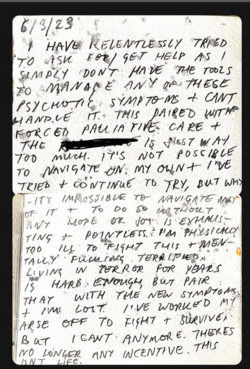 6/3/23
I HAVE RELENTLESSLY TRIED
TO ASK FOR/GET HELP AS I
SIMPLY DON'T HAVE THE TOOLS
TO MANAGE ANY OF THESE
PSYCHOTIC SYMPTOMS + CAN'T
HANDLE IT. THIS PAIRED WITH
FORCED PALLIATIVE CARE +
THE IS JUST WAY
TOO MUCH. IT'S NOT POSSIBLE
TO NAVIGATE ON MY OWN + I'VE
TRIED + CONTINUE TO TRY, BUT
- IT'S IMPOSSIBLE TO NAVIGATE
OF IT + TO DO SO WITHOUT
ANY HOPE OR JOY IS EXHAUS-
TING + POINTLESS. I'M PHYSICALLY
TOO ILL TO FIGHT THIS + MEN-
TALLY FUCKING TERRIFIED.
LIVING IN TERROR FOR YEARS
IS HARD ENOUGH BUT PAIR
THAT WITH THE NEW SYMPTOMS
+ I'M LOST. I'VE WORKED MY
ARSE OFF TO FIGHT + SURVIVE,
BUT I CAN'T ANYMORE. THERE'S
NO LONGER ANY INCENTIVE. THIS
LIFE.